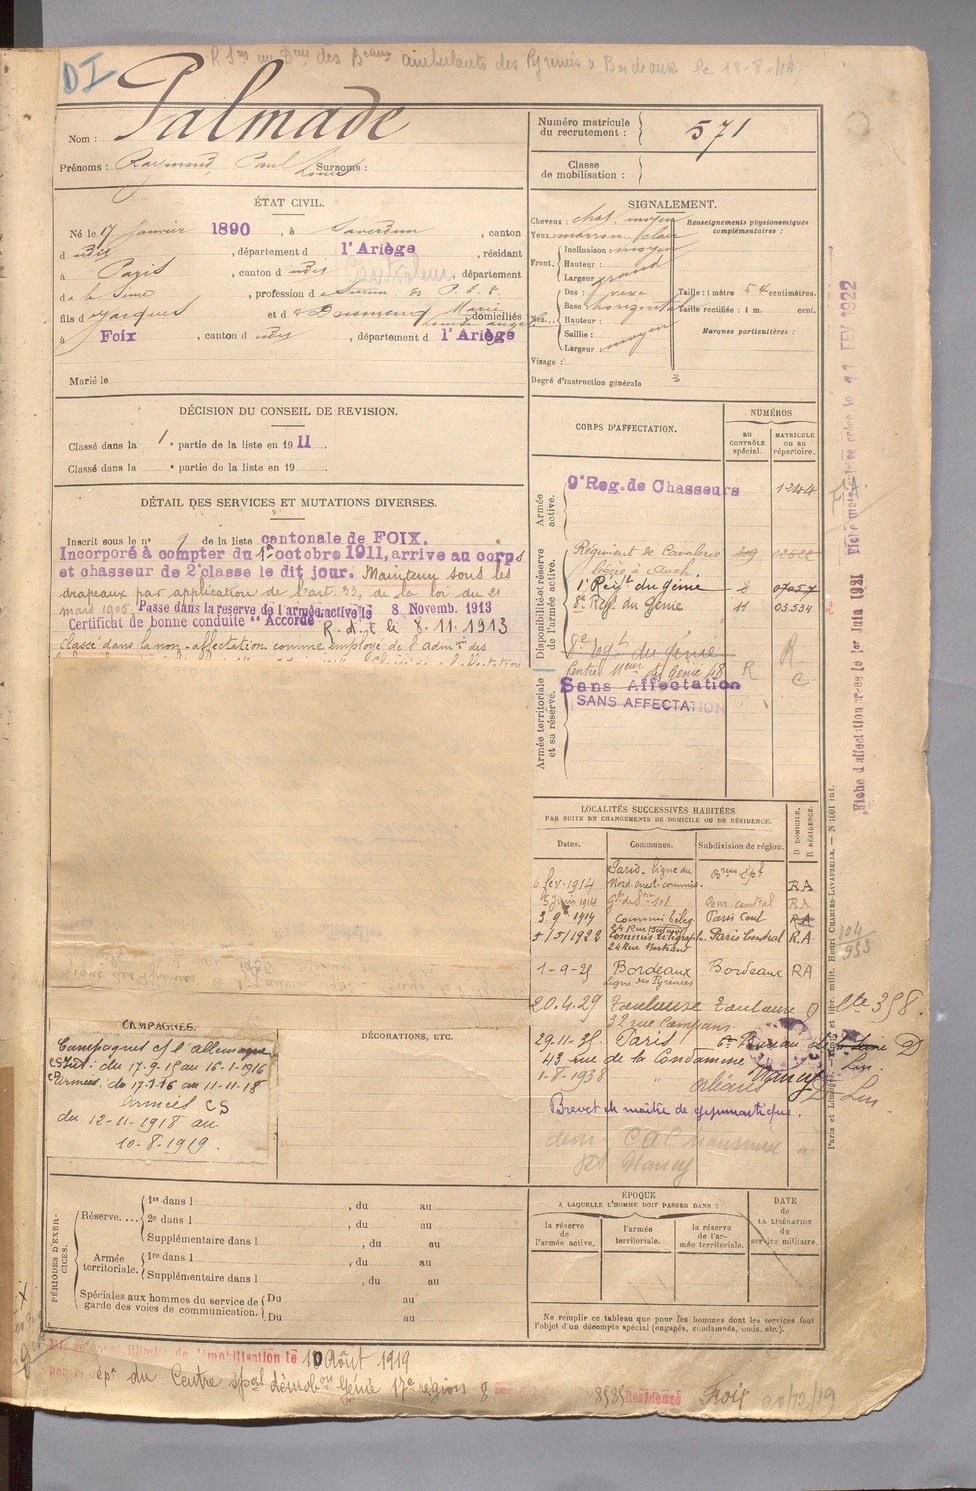 DI
des Beaux ambulants des Pyrénées à Bordeaux le 18-8-
Nom : Palmade
Prénoms : Raymond, Paul Surnoms :
Louis
Numéro matricule du recrutement : 571
Classe de mobilisation :
ÉTAT CIVIL.
Né le 17 janvier 1890, à Saverdun, canton
d udit, département d l'Ariège, résidant
à Paris, canton d udit, département
de la Seine, profession d
fils d e Jacques et d e Doumenq Marie domiciliés
à Foix, canton d udit, département d l'Ariège
Marié le
SIGNALEMENT.
Cheveux : chat. moyen
Yeux : marron clair
Front. Inclinaison : moyen
Hauteur :
Largeur : grand
Nez. Dos : rexe
Base : horizontal
Hauteur :
Saillie :
Largeur : moyen
Visage :
Renseignements physionomiques complémentaires :
Taille : 1 mètre 54 centimètres.
Taille rectifiée : 1 m. cent.
Marques particulières :
Degré d'instruction générale 3
DÉCISION DU CONSEIL DE REVISION.
Classé dans la 1e partie de la liste en 1911.
Classé dans la e partie de la liste en 19 .
DÉTAIL DES SERVICES ET MUTATIONS DIVERSES.
Inscrit sous le n° 9 de la liste cantonale de FOIX.
Incorporé à compter du 1er octobre 1911, arrive au corps
et chasseur de 2e classe le dit jour. Maintenu sous les
drapeaux par application de l'art. 33, de la loi du 21
mars 1905. Passe dans la réserve de l'armée active le 8 Novemb. 1913
Certificat de bonne conduite "Accordé"
R. d. C le 8.11.1913
Classé dans la non-affectation comme employé de l'admon des
CORPS D'AFFECTATION.
NUMÉROS
AU CONTRÔLE spécial.
MATRICULE OU AU répertoire.
Armée active.
9e Reg. de Chasseurs 1244
Disponibilité et réserve de l'armée active.
Régiment de Cavalerie
légère à Auch
1er Régt du Génie 8
8e Reg. du Génie 11 03.534
8e Régt du génie R
Centre Meur du Génie 48 R C
Armée territoriale et sa réserve.
Sans Affectation
SANS AFFECTATION
Fiche d'affectation créée le 1er Juin 1921
Fiche matricule créée le 11 FEV 1922
LOCALITÉS SUCCESSIVES HABITÉES
PAR SUITE DE CHANGEMENTS DE DOMICILE OU DE RÉSIDENCE.
Dates. Communes. Subdivision de région. D DOMICILE. R RÉSIDENCE.
6 fev. 1914 Paris-ligne du
Nord-ouest-commis. RA
5 juin 1914 com. central RA
3. 9e 1914 Commis téleg Paris Cent RA
24 Rue Bertrand
5/5/1922 Commis télégraph. Paris Central R.A.
24 Rue Bertrand
1-9-25 Bordeaux Bordeaux RA
Ligne des Pyrénées
20.4.29 Toulouse Toulouse D
32 rue Campans
29.11.35 Paris 6e Bureau Seine D
43 rue de la Condamine Nancy
1-8-1938 " Orléans
Brevet de maître de gymnastique.
Nancy
104
953
Paris et Limoges. — Impr. et libr. milit. Henri CHARLES-LAVAUZELLE. — N° 1001 int.
CAMPAGNES.
Campagnes c/ l'allemagne
CS Int : du 17-9-15 au 16-1-1916
Armées : du 17-1-16 au 11-11-18
Armées CS
du 12-11-1918 au
10-8-1919.
DÉCORATIONS, ETC.
PÉRIODES D'EXERCICES.
Réserve.... 1re dans l , du au
2e dans l , du au
Supplémentaire dans l , du au
Armée territoriale. 1re dans l , du au
Supplémentaire dans l , du au
Spéciales aux hommes du service de garde des voies de communication. Du au
Du au
ÉPOQUE
A LAQUELLE L'HOMME DOIT PASSER DANS :
la réserve de l'armée active.
l'armée territoriale.
la réserve de l'armée territoriale.
DATE de LA LIBÉRATION du service militaire.
Ne remplir ce tableau que pour les hommes dont les services font l'objet d'un décompte spécial (engagés, condamnés, omis, etc.).
Mis en congé illimité de démobilisation le 10 Août 1919
par le dépôt du Centre spal démobon Génie 17e région
Résidence Foix 20/12/19